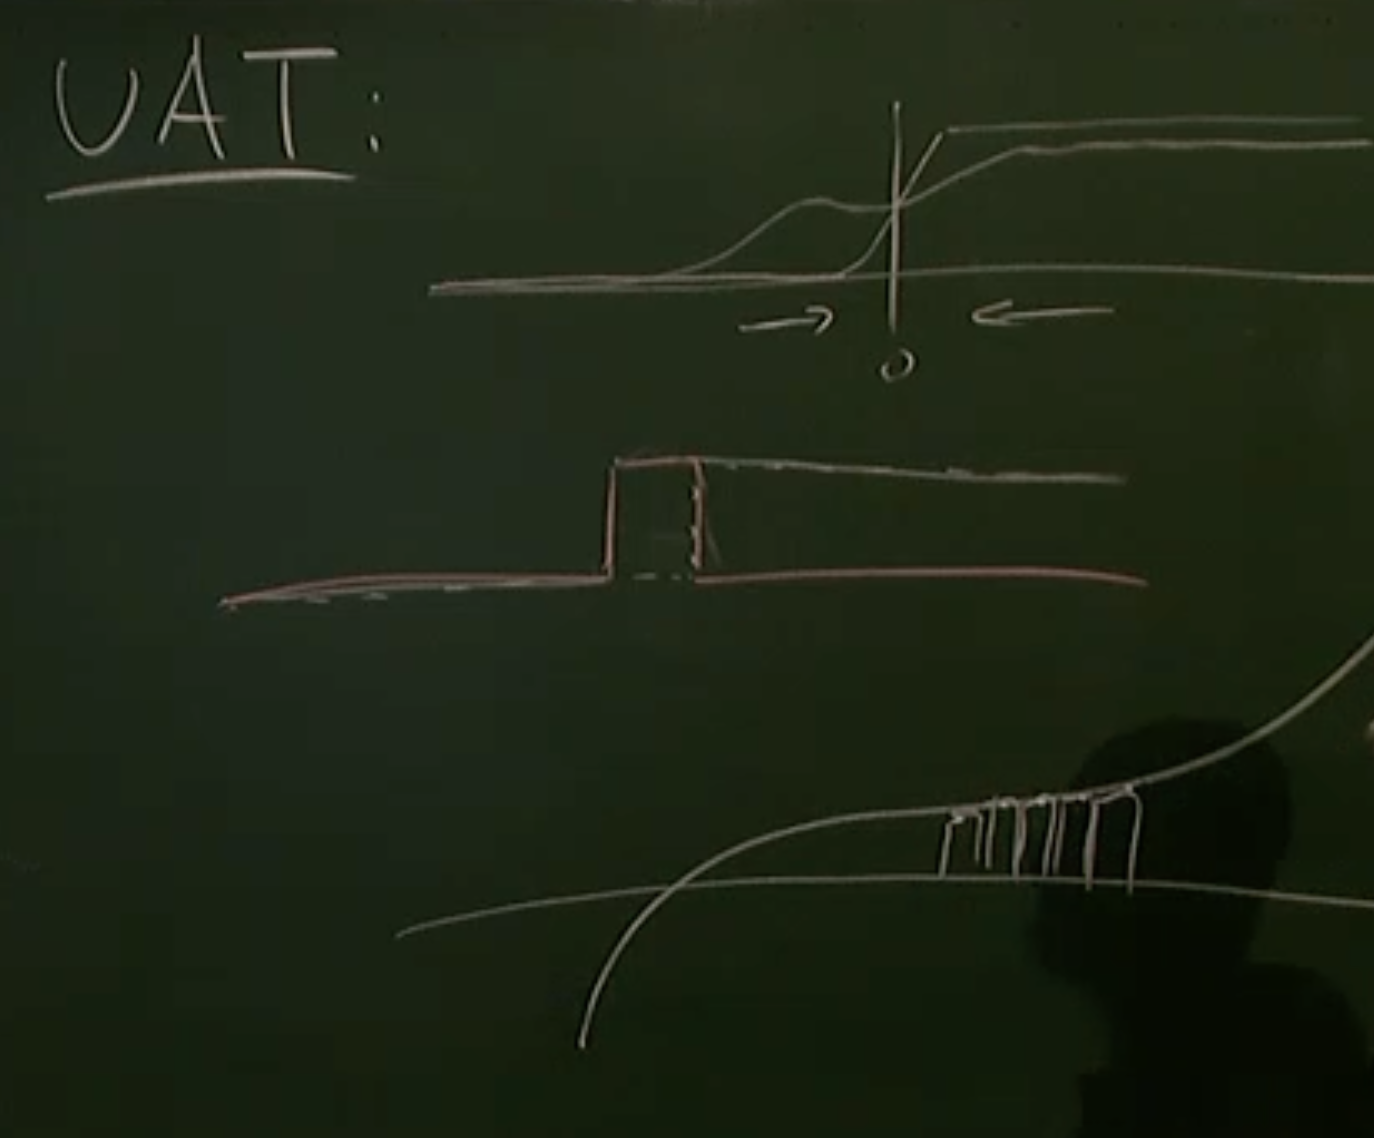 UAT:
0